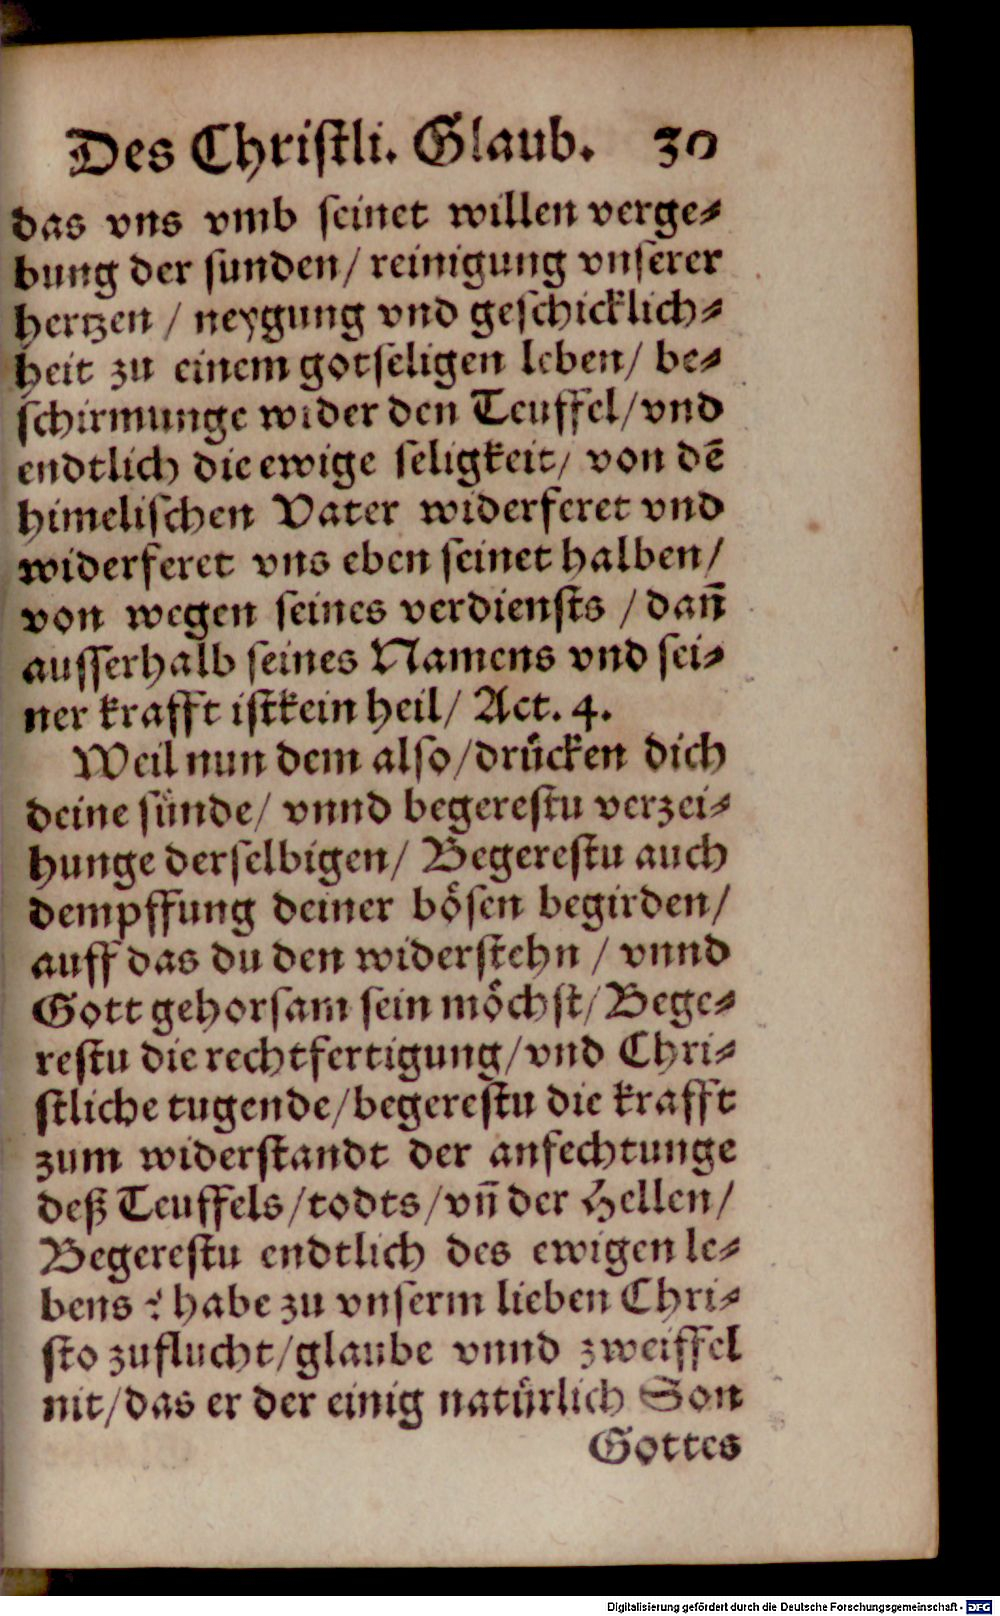 Des Christli. Glaub. 30
das vns vmb seinet willen verge⸗
bung der sunden/ reinigung vnserer
hertzen / neygung vnd geschicklich⸗
heit zu einem gotseligen leben/ be⸗
schirmunge wider den Teuffel/ vnd
endtlich die ewige seligkeit/ von dẽ
himelischen Vater widerferet vnd
widerferet vns eben seinet halben/
von wegen seines verdiensts / dañ
ausserhalb seines Namens vnd sei⸗
ner krafft ist kein heil/ Act. 4.
Weil nun dem also/ drücken dich
deine sünde/ vnnd begerestu verzei⸗
hunge derselbigen/ Begerestu auch
dempffung deiner bösen begirden/
auff das du den widerstehn / vnnd
Gott gehorsam sein möchst/ Bege⸗
restu die rechtfertigung/ vnd Chri⸗
stliche tugende/ begerestu die krafft
zum widerstandt der anfechtunge
deß Teuffels/ todts/ vñ der Hellen/
Begerestu endtlich des ewigen le⸗
bens ? habe zu vnserm lieben Chri⸗
sto zuflucht/ glaube vnnd zweiffel
nit/ das er der einig natürlich Son
Gottes
Digitalisierung gefördert durch die Deutsche Forschungsgemeinschaft - DFG